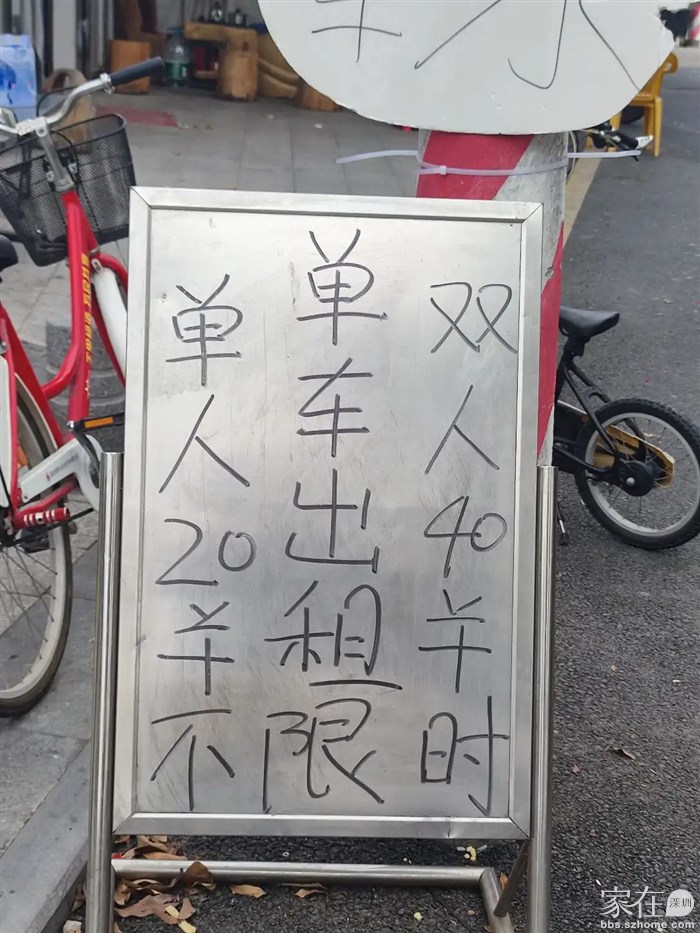 单车出租
单人20羊
双人40羊
不限时
家在深圳
bbs.szhome.com